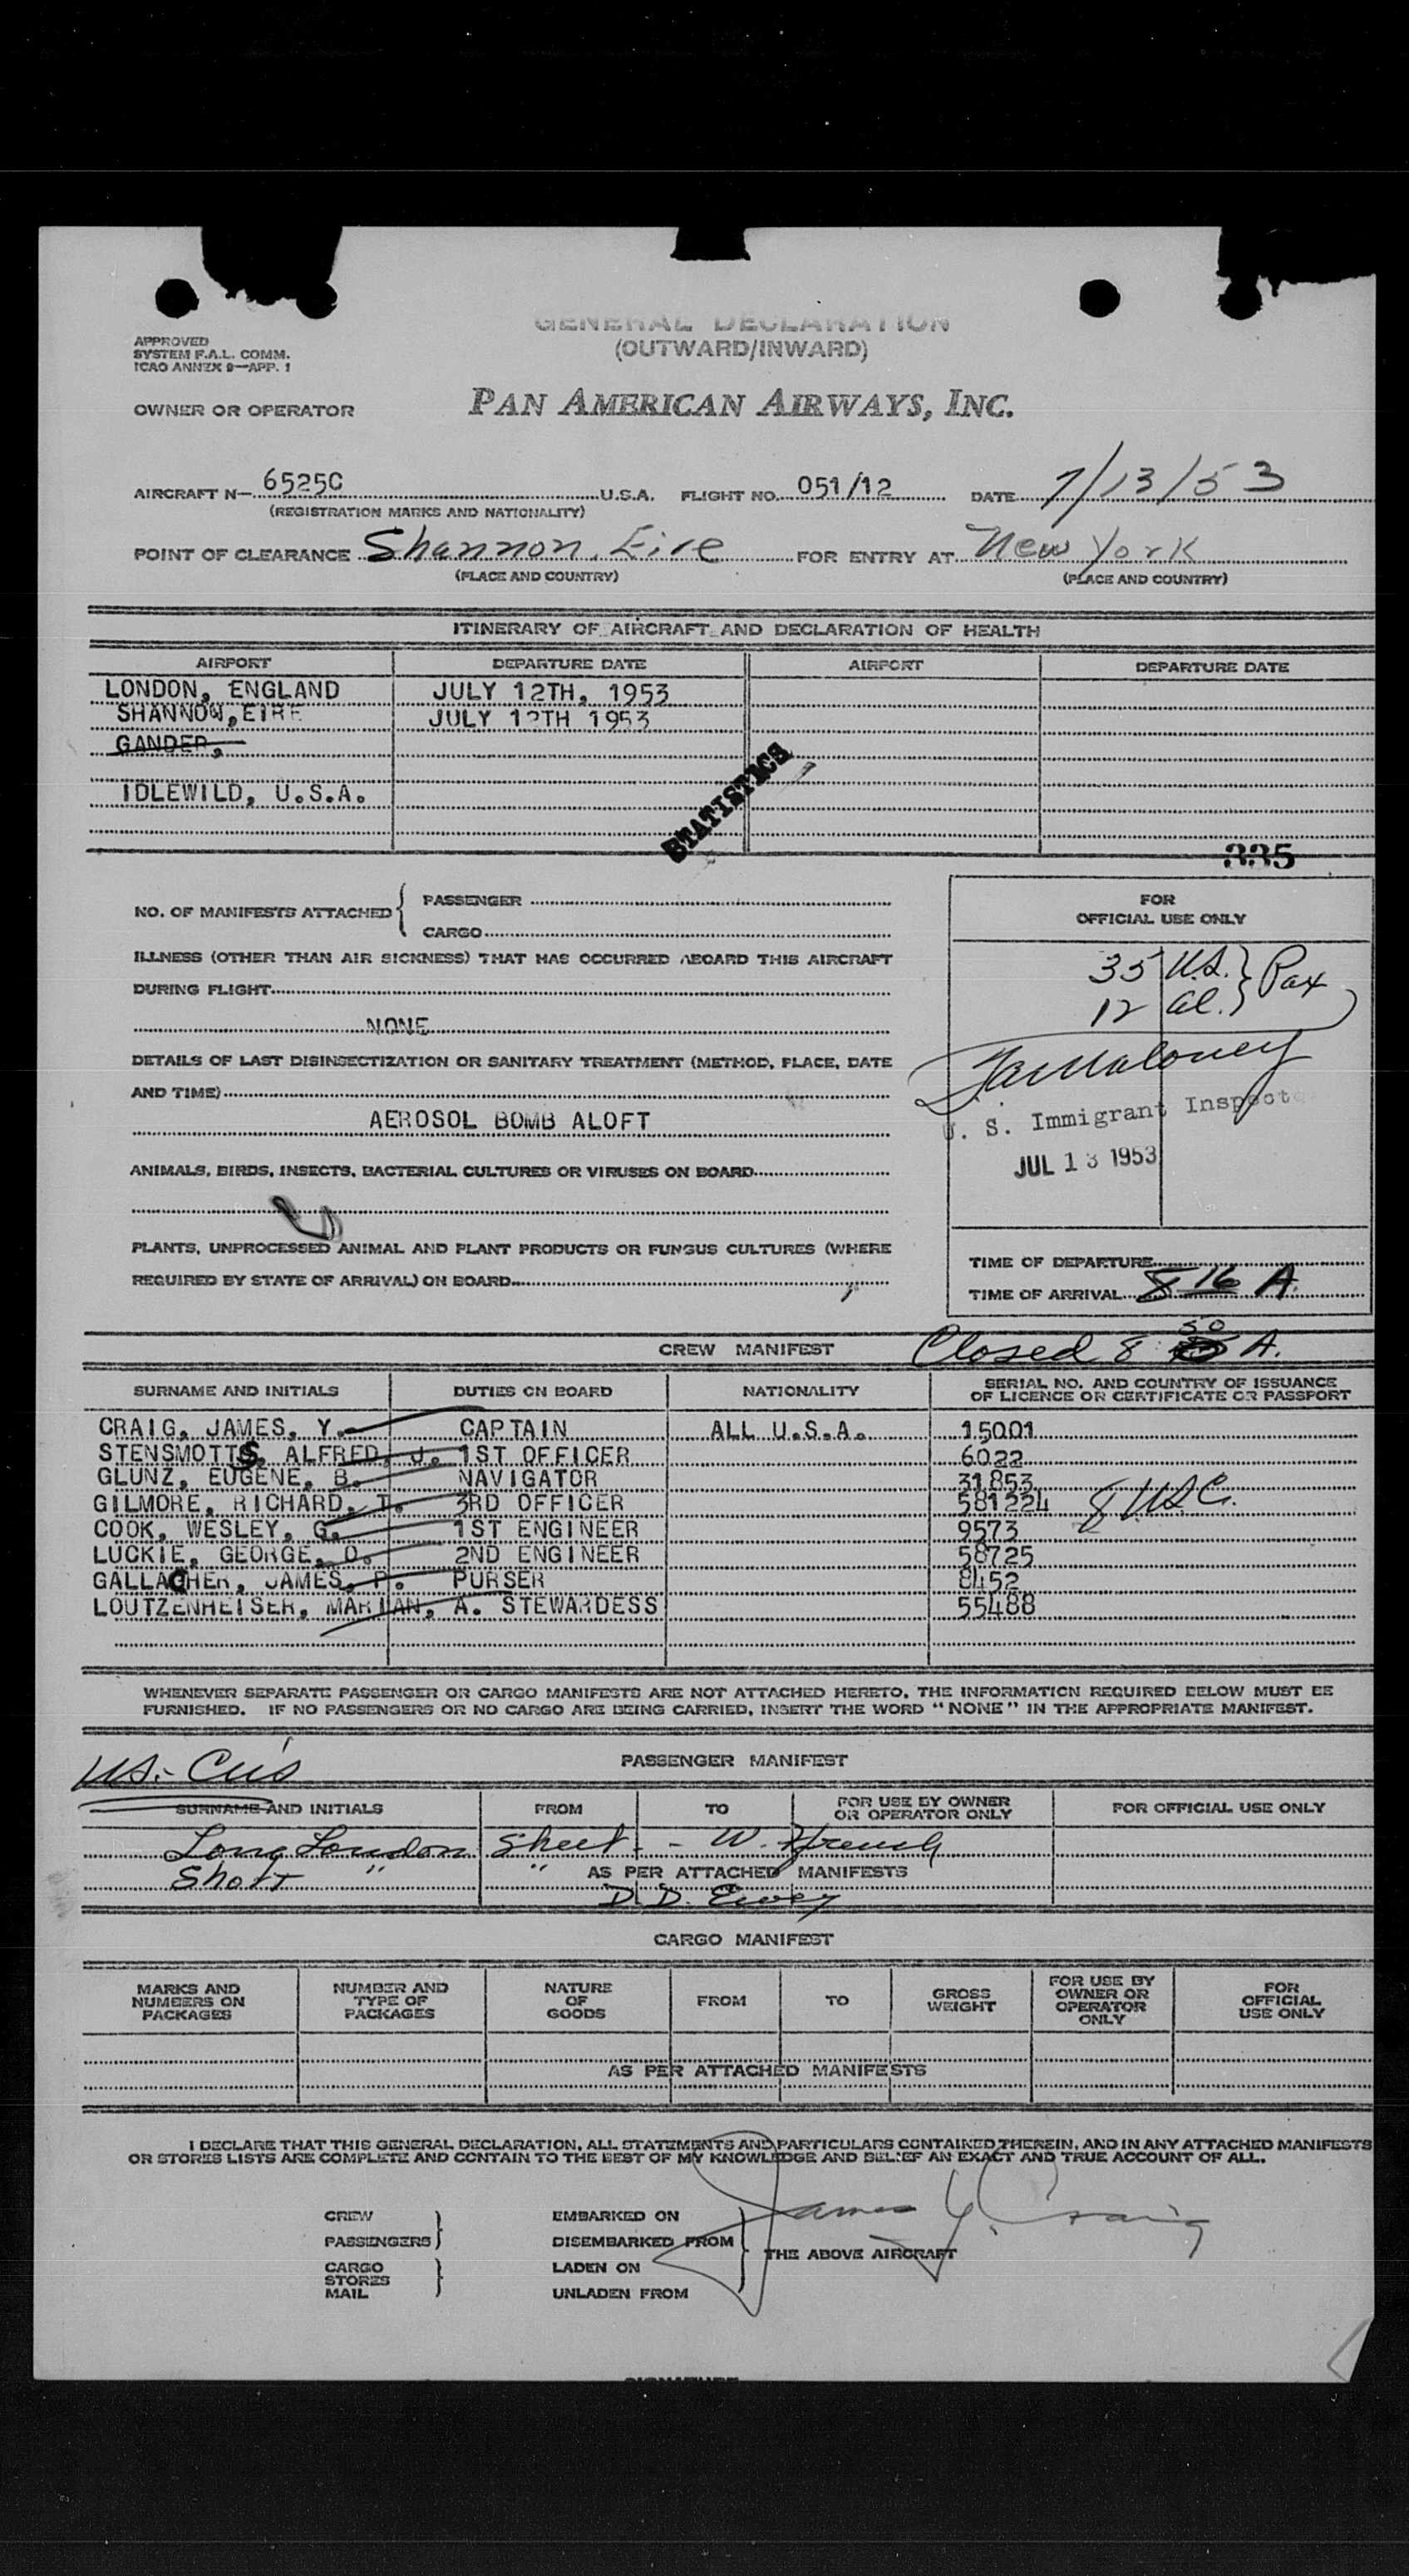 GENERAL DECLARATION
(OUTWARD/INWARD)
APPROVED
SYSTEM F.A.L. COMM.
ICAO ANNEX 9—APP. 1
OWNER OR OPERATOR PAN AMERICAN AIRWAYS, INC.
AIRCRAFT N- 6525C U.S.A. FLIGHT NO. 051/12 DATE 7/13/53
(REGISTRATION MARKS AND NATIONALITY)
POINT OF CLEARANCE Shannon, Eire FOR ENTRY AT New York
(PLACE AND COUNTRY) (PLACE AND COUNTRY)
ITINERARY OF AIRCRAFT AND DECLARATION OF HEALTH
AIRPORT DEPARTURE DATE AIRPORT DEPARTURE DATE
LONDON, ENGLAND JULY 12TH, 1953
SHANNON, EIRE JULY 12TH 1953
GANDER,
IDLEWILD, U.S.A.
STATISTICS
335
NO. OF MANIFESTS ATTACHED { PASSENGER
CARGO
ILLNESS (OTHER THAN AIR SICKNESS) THAT HAS OCCURRED ABOARD THIS AIRCRAFT
DURING FLIGHT
NONE
DETAILS OF LAST DISINSECTIZATION OR SANITARY TREATMENT (METHOD, PLACE, DATE
AND TIME)
AEROSOL BOMB ALOFT
ANIMALS, BIRDS, INSECTS, BACTERIAL CULTURES OR VIRUSES ON BOARD
PLANTS, UNPROCESSED ANIMAL AND PLANT PRODUCTS OR FUNGUS CULTURES (WHERE
REQUIRED BY STATE OF ARRIVAL) ON BOARD
FOR
OFFICIAL USE ONLY
35 U.S. } Pax
12 al. }
Maloney
U. S. Immigrant Inspector
JUL 13 1953
TIME OF DEPARTURE
TIME OF ARRIVAL 8 16 A.
CREW MANIFEST Closed 8 50 A.
SURNAME AND INITIALS DUTIES ON BOARD NATIONALITY SERIAL NO. AND COUNTRY OF ISSUANCE
OF LICENCE OR CERTIFICATE OR PASSPORT
CRAIG, JAMES, Y. CAPTAIN ALL U.S.A. 15001
STENSMOTTS, ALFRED, J. 1ST OFFICER 6022
GLUNZ, EUGENE, B. NAVIGATOR 31853
GILMORE, RICHARD, T. 3RD OFFICER 581224 8 USC.
COOK, WESLEY, G. 1ST ENGINEER 9573
LUCKIE, GEORGE, O. 2ND ENGINEER 58725
GALLAGHER, JAMES, P. PURSER 8452
LOUTZENHEISER, MARIAN, A. STEWARDESS 55488
WHENEVER SEPARATE PASSENGER OR CARGO MANIFESTS ARE NOT ATTACHED HERETO, THE INFORMATION REQUIRED BELOW MUST BE
FURNISHED. IF NO PASSENGERS OR NO CARGO ARE BEING CARRIED, INSERT THE WORD "NONE" IN THE APPROPRIATE MANIFEST.
US.- Cus
PASSENGER MANIFEST
SURNAME AND INITIALS FROM TO FOR USE BY OWNER
OR OPERATOR ONLY FOR OFFICIAL USE ONLY
Long London Sheet - W.
Short " " AS PER ATTACHED MANIFESTS
D. D.
CARGO MANIFEST
MARKS AND
NUMBERS ON
PACKAGES NUMBER AND
TYPE OF
PACKAGES NATURE
OF
GOODS FROM TO GROSS
WEIGHT FOR USE BY
OWNER OR
OPERATOR
ONLY FOR
OFFICIAL
USE ONLY
AS PER ATTACHED MANIFESTS
I DECLARE THAT THIS GENERAL DECLARATION, ALL STATEMENTS AND PARTICULARS CONTAINED THEREIN, AND IN ANY ATTACHED MANIFESTS
OR STORES LISTS ARE COMPLETE AND CONTAIN TO THE BEST OF MY KNOWLEDGE AND BELIEF AN EXACT AND TRUE ACCOUNT OF ALL.
James Y. Craig
CREW } EMBARKED ON
PASSENGERS } DISEMBARKED FROM } THE ABOVE AIRCRAFT
CARGO } LADEN ON
STORES
MAIL } UNLADEN FROM
SIGNATURE